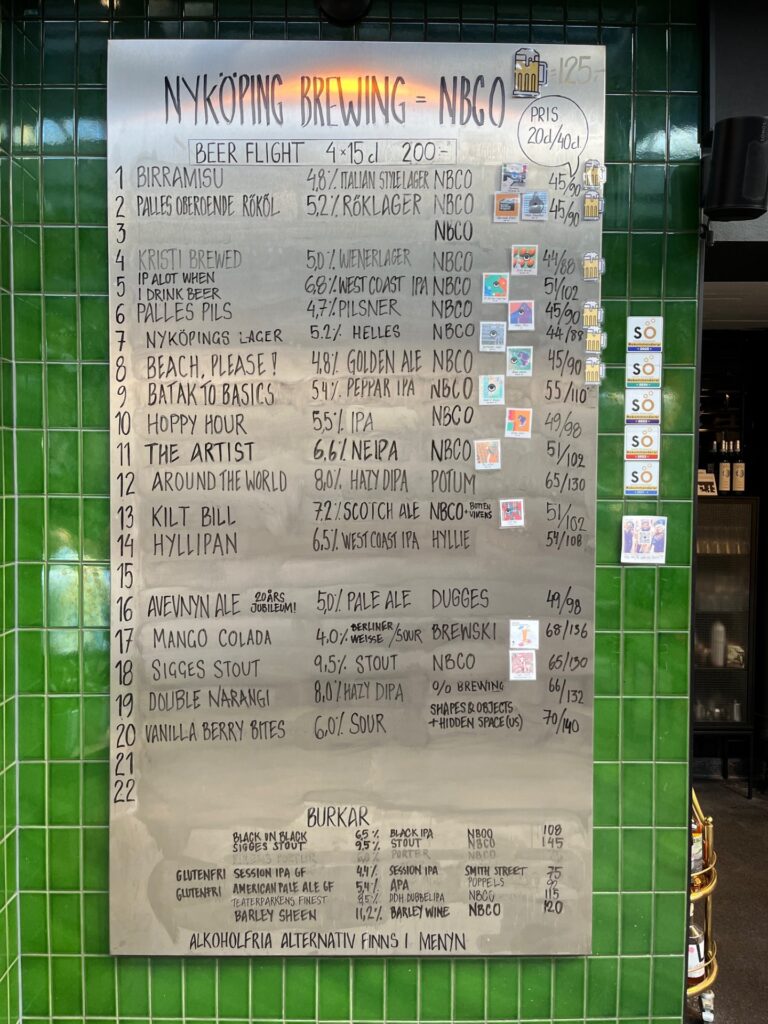 NYKÖPING BREWING = NBCO
=125:-
PRIS
20cl/40cl
BEER FLIGHT 4×15cl 200:-
1 BIRRAMISU 4,8% ITALIAN STYLE LAGER NBCO 45/90
2 PALLES OBEROENDE RÖKÖL 5.2% RÖKLAGER NBCO 45/90
3 NBCO
4 KRISTI BREWED 5,0% WIENERLAGER NBCO 44/88
5 IP ALOT WHEN I DRINK BEER 6,8% WEST COAST IPA NBCO 51/102
6 PALLES PILS 4,7% PILSNER NBCO 45/90
7 NYKÖPINGS LAGER 5.2% HELLES NBCO 44/88
8 BEACH, PLEASE! 4,8% GOLDEN ALE NBCO 45/90
9 BATAK TO BASICS 5,4% PEPPAR IPA NBCO 55/110
10 HOPPY HOUR 5,5% IPA NBCO 49/98
11 THE ARTIST 6,6% NEIPA NBCO 51/102
12 AROUND THE WORLD 8,0% HAZY DIPA POTUM 65/130
13 KILT BILL 7.2% SCOTCH ALE NBCO + BOTTEN VIKENS 51/102
14 HYLLIPAN 6,5% WEST COAST IPA HYLLIE 54/108
15
16 AVEVNYN ALE 20 ÅRS JUBILEUM! 5,0% PALE ALE DUGGES 49/98
17 MANGO COLADA 4.0% BERLINER WEISSE/SOUR BREWSKI 68/136
18 SIGGES STOUT 9,5% STOUT NBCO 65/130
19 DOUBLE NARANGI 8,0% HAZY DIPA O/O BREWING 66/132
20 VANILLA BERRY BITES 6,0% SOUR SHAPES & OBJECTS + HIDDEN SPACE (US) 70/140
21
22
BURKAR
BLACK ON BLACK 6,5% BLACK IPA NBCO 108
SIGGES STOUT 9,5% STOUT NBCO 145
PORTER NBCO
GLUTENFRI SESSION IPA GF 4.4% SESSION IPA SMITH STREET 75
GLUTENFRI AMERICAN PALE ALE GF 5,4% APA POPPELS
TEATERPARKENS FINEST 8,5% DDH DUBBELIPA NBCO 115
BARLEY SHEEN 11,2% BARLEY WINE NBCO 120
ALKOHOLFRIA ALTERNATIV FINNS I MENYN
SÖ
SÖ
SÖ
SÖ
SÖ